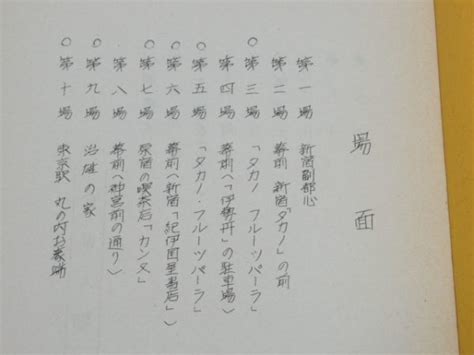 場面
第一場 新宿副都心
第二場 幕前 新宿「タカノ」の前
○第三場 「タカノ フルーツパーラ」
第四場 幕前へ「伊勢丹」の駐車場〉
○第五場 「タカノ・フルーツパーラ」
○第六場 幕前へ新宿「紀伊国屋書店」〉
○第七場 原宿の喫茶店「カンヌ」
第八場 幕前〈神宮前の通り〉
○第九場 治雄の家
○第十場 東京駅 丸の内